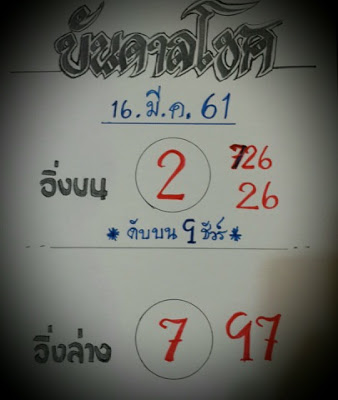 บันดาลโชค
16. มี. ค. 61
อิ่งบน 2 726
26
* ดับบน 9 ชัวร์ *
อิ่งล่าง 7 97